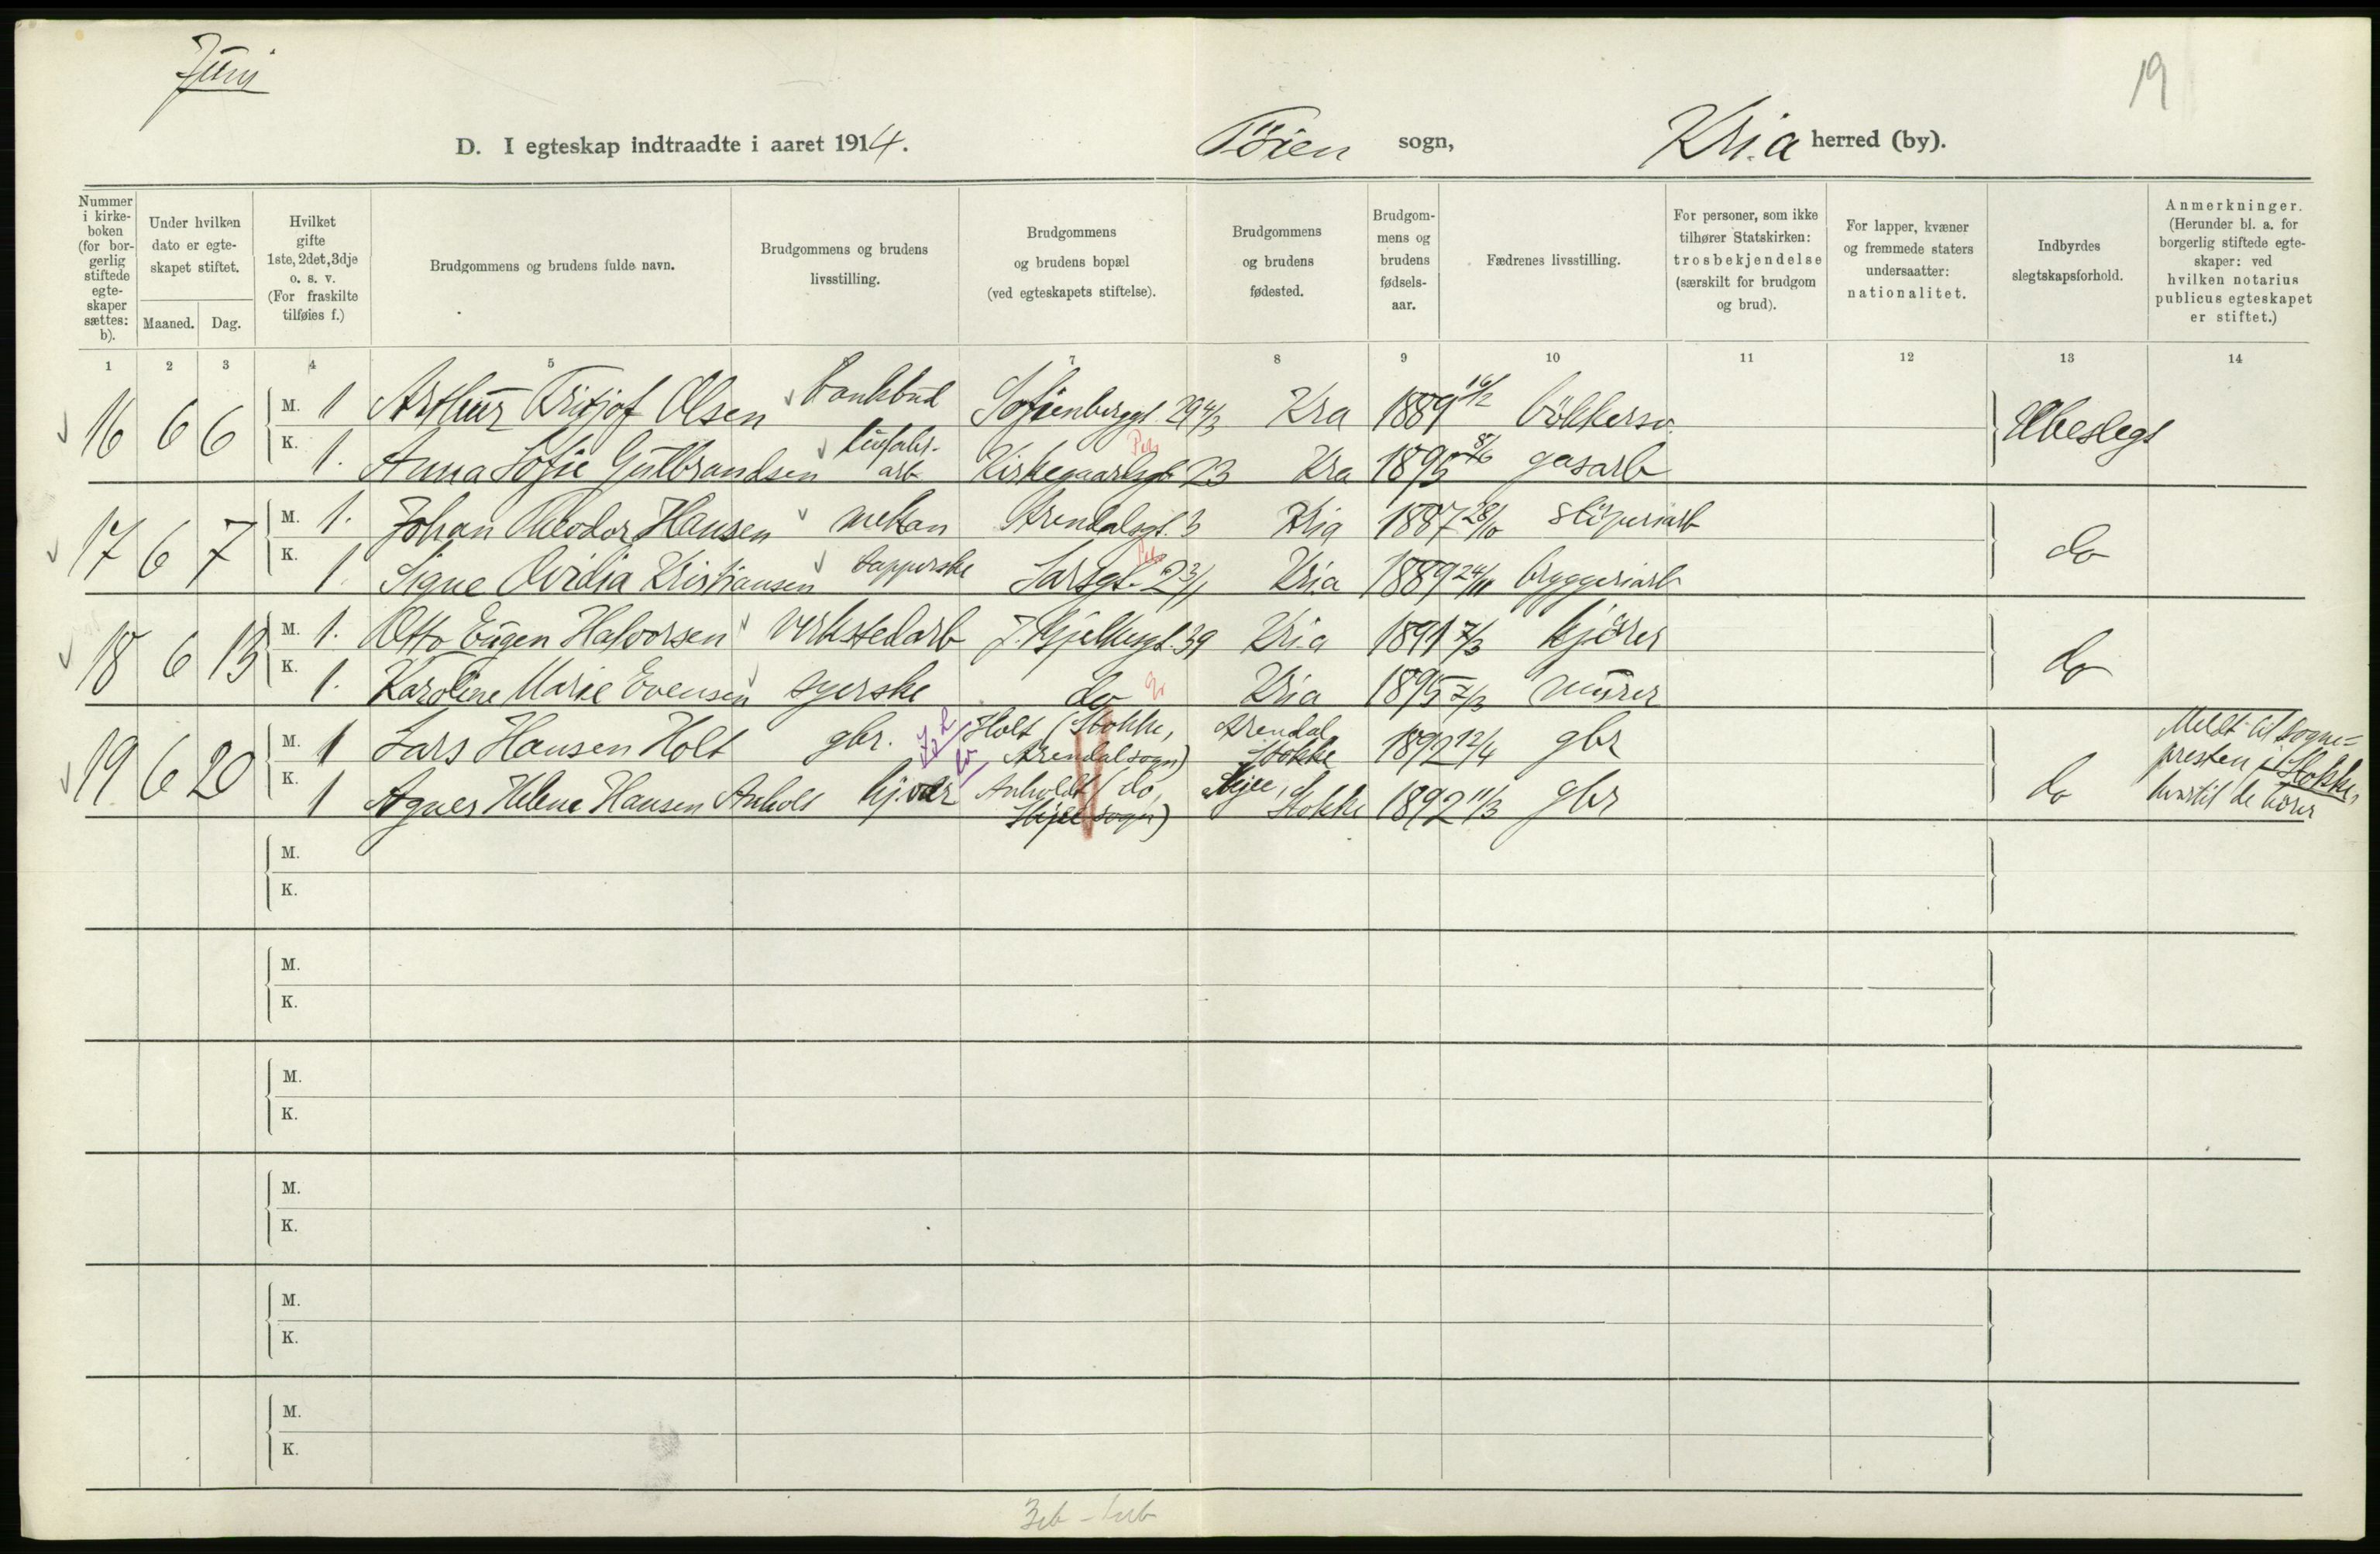 Juni
19
D. I egteskap indtraadte i aaret 1914.
Töien sogn,
Kri.a herred (by).
Nummer i kirke-boken (for bor-gerlig stiftede egte-skaper sættes: b).
Under hvilken dato er egte-skapet stiftet.
Maaned. Dag.
Hvilket gifte 1ste, 2det, 3dje o. s. v. (For fraskilte tilføies f.)
Brudgommens og brudens fulde navn.
Brudgommens og brudens livsstilling.
Brudgommens og brudens bopæl (ved egteskapets stiftelse).
Brudgommens og brudens fødested.
Brudgom-mens og brudens fødsels-aar.
Fædrenes livsstilling.
For personer, som ikke tilhører Statskirken: trosbekjendelse (særskilt for brudgom og brud).
For lapper, kvæner og fremmede staters undersaatter: nationalitet.
Indbyrdes slegtskapsforhold.
Anmerkninger. (Herunder bl. a. for borgerlig stiftede egte-skaper: ved hvilken notarius publicus egteskapet er stiftet.)
1 2 3 4 5 7 8 9 10 11 12 13 14
16 6 6 M. 1 Arthur Fritjof Olsen bankbud Sofienberggt. 29 4/3 Kra 1889 16/2 bökkersv. Ubeslegt
K. 1. Anna Sofie Gulbrandsen arb Kirkegaardsgt 23 Kra 1895 8/6 gasarb
17 6 7 M. 1. Johan Theodor Hansen mekan Arendalsgt. 3 Kria 1887 28/10 støperiarb do
K. 1. Signe Ovidia Kristiansen tapperske Sarsgt. 23/1 Kria 1889 24/11 bryggeriarb
18 6 13 M. 1. Otto Eugen Halvorsen verkstedarb J. Hjelmsgt. 39 Kri.a 1891 7/3 kjörer do
K. 1. Karoline Marie Evensen syerske do Kria 1895 7/3 murer
19 6 20 M. 1 Lars Hansen Holt gbr. Holt (Stokke, Arendal sogn) Arendal Stokke 1892 12/4 gbr do Meldt til sogne=presten i Stokke, hvortil de hører
K. 1 Agnes Helene Hansen Anholt hj. vær Anholdt (do, Skjee sogn) Skjee, Stokke 1892 11/3 gbr
M.
K.
M.
K.
M.
K.
M.
K.
M.
K.
M.
K.